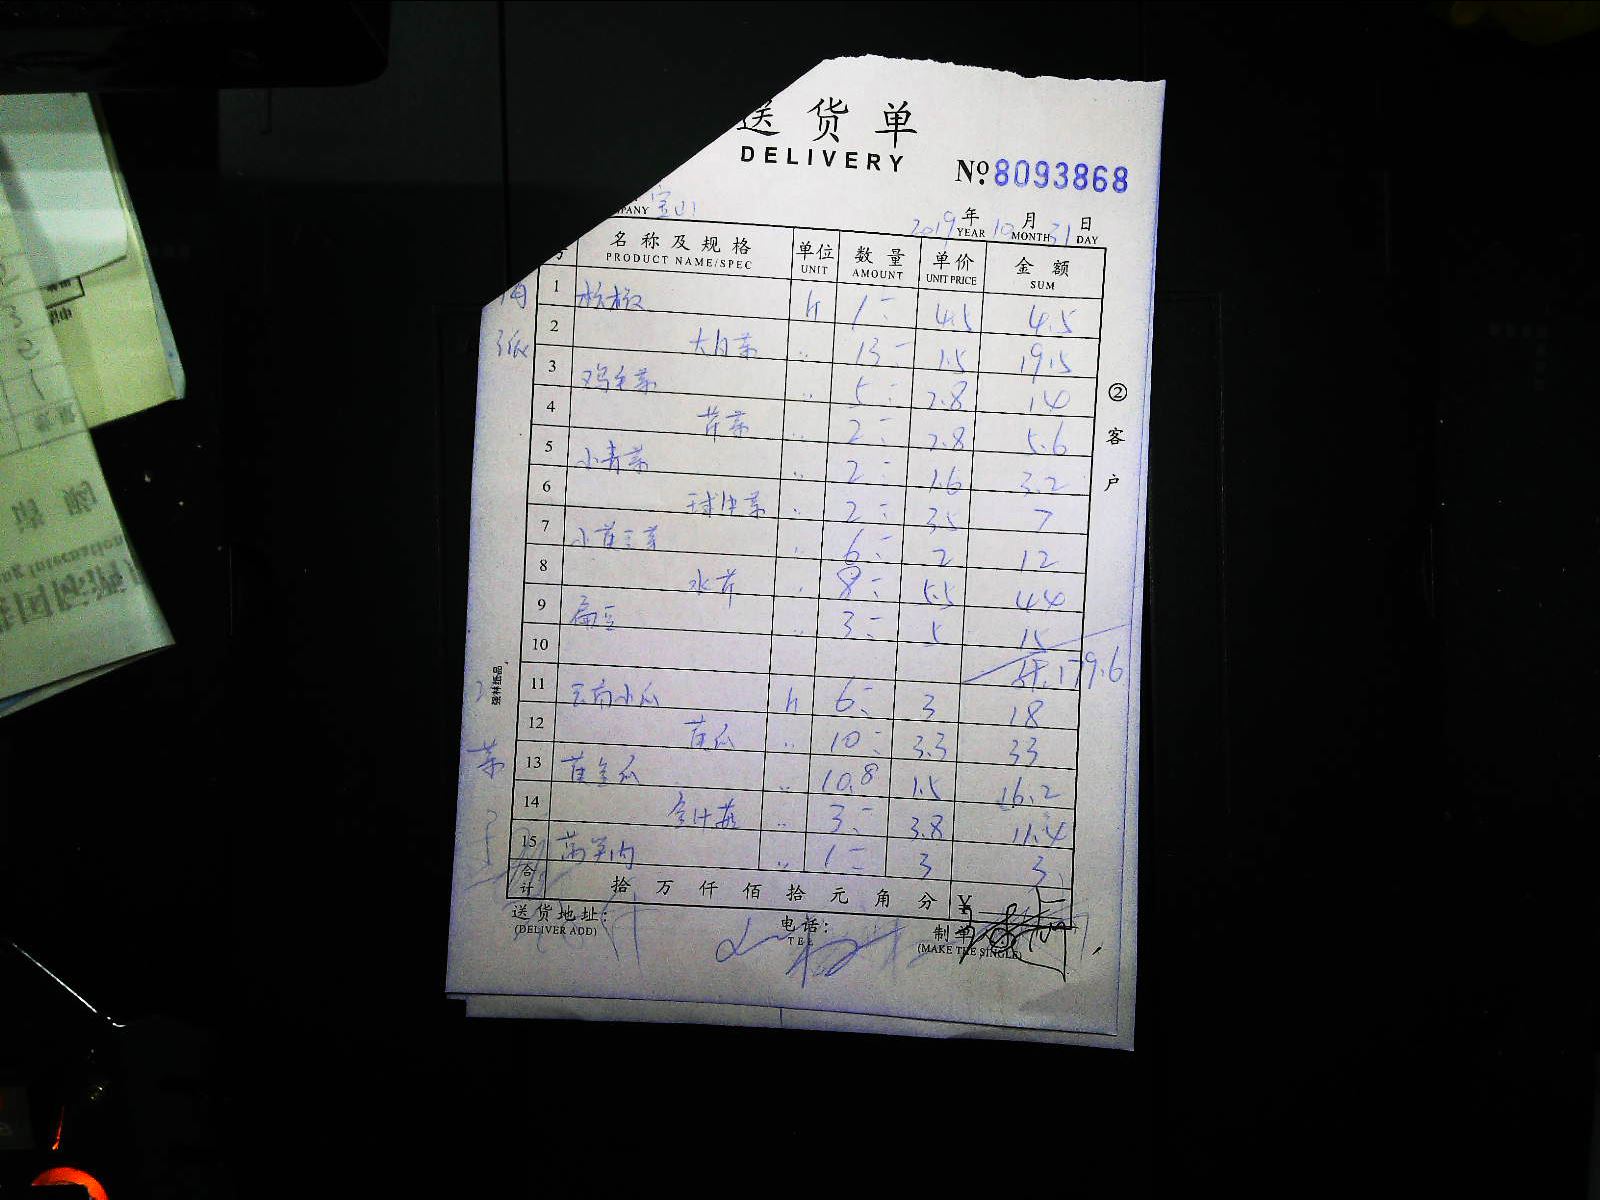 送货单
DELIVERY
No. 8093868
PANY 宝山
2019 年 10 月 31 日
YEAR MONTH DAY
名称及规格 单位 数量 单价 金额
PRODUCT NAME/SPEC UNIT AMOUNT UNIT PRICE SUM
1 4.5 4.5
2 大白菜 〃 13 1.5 19.5
3 鸡毛菜 〃 5 2.8 14
4 芹菜 〃 2 2.8 5.6
5 小青菜 〃 2 1.6 3.2
6 球生菜 〃 2 3.5 7
7 〃 6 2 12
8 水芹 〃 8 5.5 44
9 扁豆 〃 3 5 15
10 179.6
11 云南小瓜 6 3 18
12 黄瓜 〃 10 3.3 33
13 黄金瓜 〃 10.8 1.5 16.2
14 金针菇 〃 3 3.8 11.4
15 〃 1 3 3
合计 拾 万 仟 佰 拾 元 角 分 ¥
送货地址: 电话: 制单
(DELIVER ADD) TEL (MAKE THE SINGLE)
②客户
强林纸品